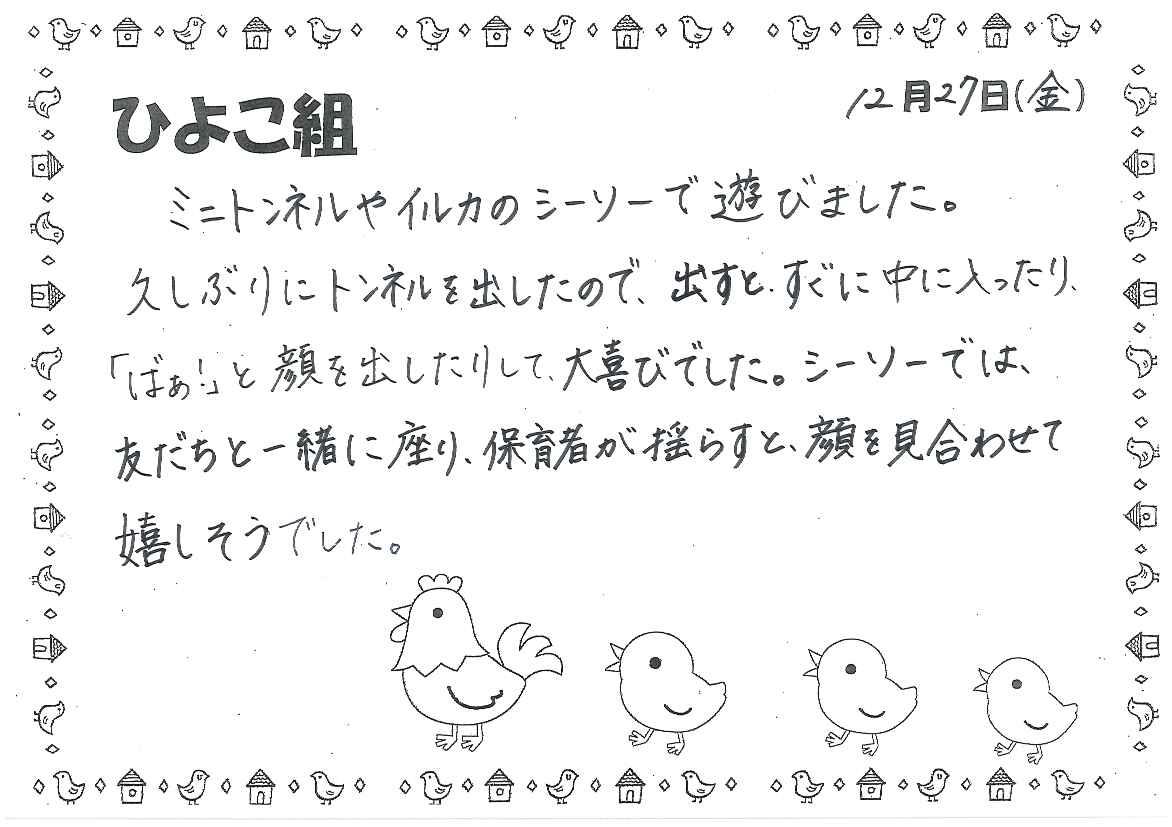 12月27日(金)
ひよこ組
ミニトンネルやイルカのシーソーで遊びました。
久しぶりにトンネルを出したので、出すと、すぐに中に入ったり、
「ばぁ!」と顔を出したりして、大喜びでした。シーソーでは、
友だちと一緒に座り、保育者が揺らすと、顔を見合わせて
嬉しそうでした。